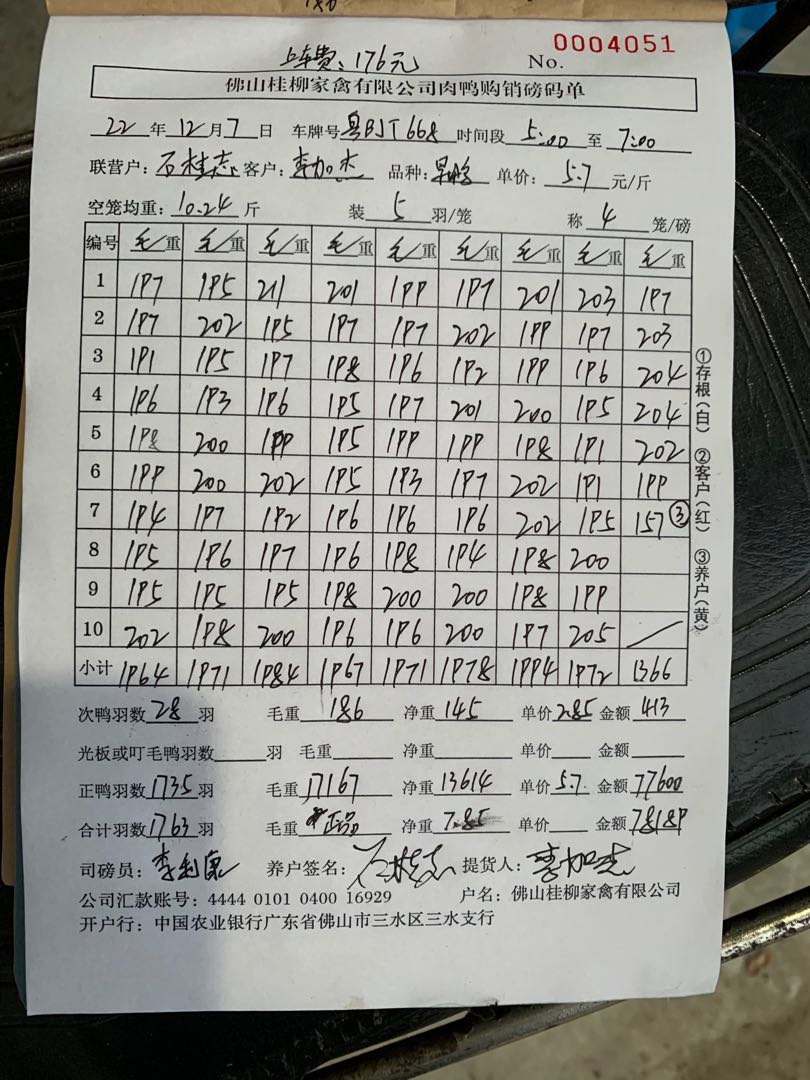 上车费：176元
No. 0004051
佛山桂柳家禽有限公司肉鸭购销磅码单
22 年 12 月 7 日 车牌号 粤BJT668 时间段 5:00 至 7:00
联营户：石桂志 客户：李加杰 品种： 单价：5.7 元/斤
空笼均重：10.24 斤 装 5 羽/笼 称 4 笼/磅
编号 毛重 毛重 毛重 毛重 毛重 毛重 毛重 毛重 毛重
1 197 195 211 201 199 197 201 203 197
2 197 202 195 197 197 202 199 197 203
3 191 195 197 198 196 192 199 196 204
4 196 193 196 195 197 201 200 195 204
5 198 200 199 195 199 199 198 191 202
6 199 200 202 195 193 197 202 191 199
7 194 197 192 196 196 196 202 195 157 ③
8 195 196 197 196 198 194 198 200
9 195 195 195 198 200 200 198 199
10 202 198 200 196 196 200 197 205 /
小计 1964 1971 1984 1967 1971 1978 1994 1972 1366
①存根（白） ②客户（红） ③养户（黄）
次鸭羽数 28 羽 毛重 186 净重 145 单价 2.85 金额 413
光板或叮毛鸭羽数 羽 毛重 净重 单价 金额
正鸭羽数 1735 羽 毛重 17167 净重 13614 单价 5.7 金额 77600
合计羽数 1763 羽 毛重 正品 净重 7.85 单价 金额 78189
司磅员： 养户签名：石桂志 提货人：李加杰
公司汇款账号：4444 0101 0400 16929 户名：佛山桂柳家禽有限公司
开户行：中国农业银行广东省佛山市三水区三水支行